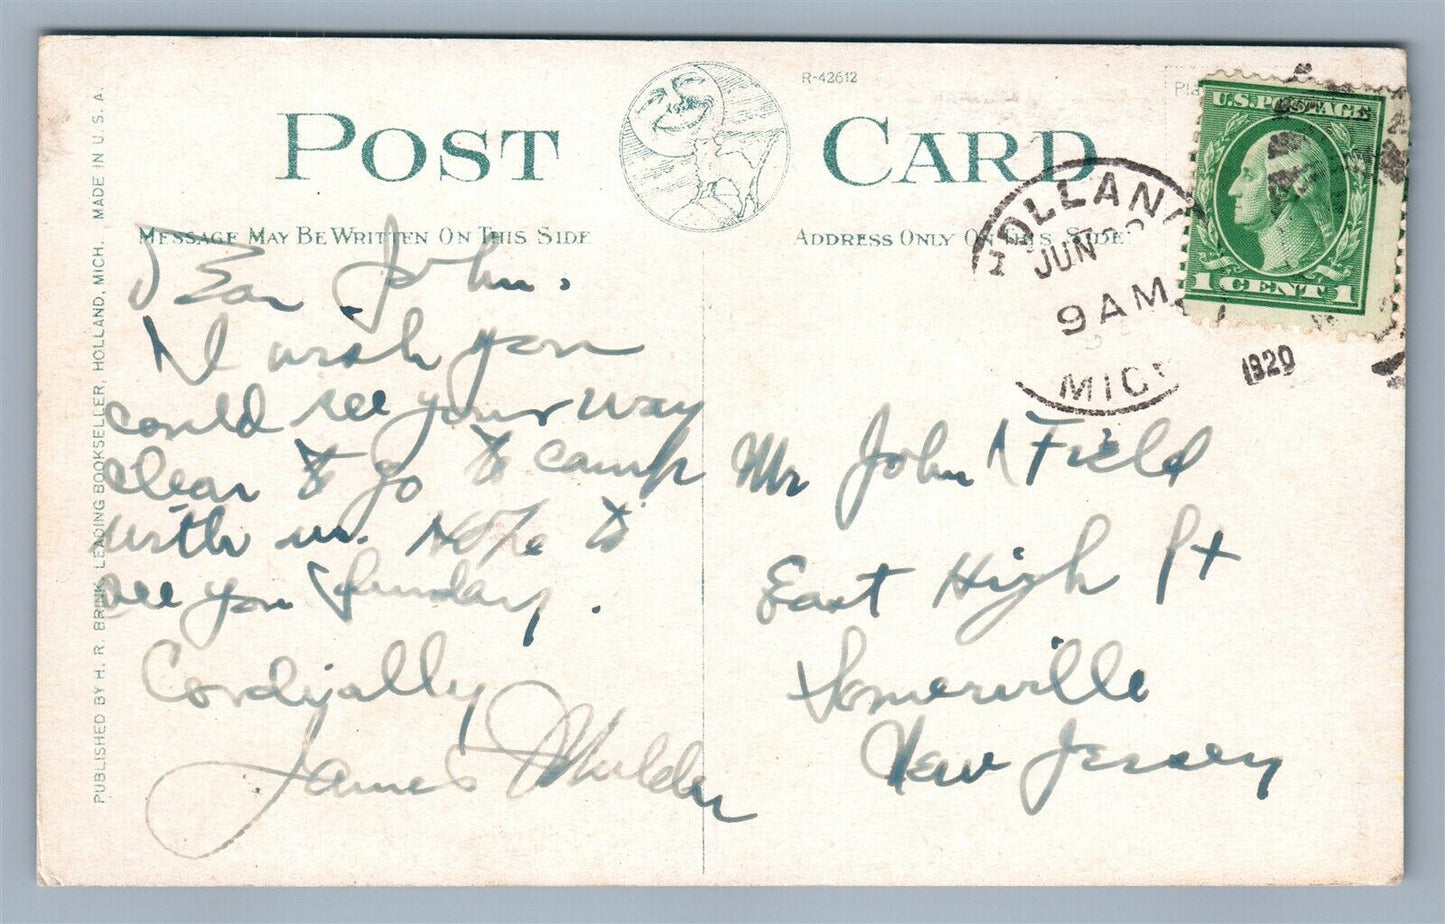 R-42612
Pla
U.S. POSTAGE
1 CENT 1
POST CARD
HOLLAND
JUN
9 AM
MICH
1920
MESSAGE MAY BE WRITTEN ON THIS SIDE
ADDRESS ONLY ON THIS SIDE
Dear John.
I wish you
could see your way
clear to go to camp
with us. Hope to
see you Sunday.
Cordially
James Mulder
Mr John Field
East High St
Somerville
New Jersey
PUBLISHED BY H. R. BRINK, LEADING BOOKSELLER, HOLLAND, MICH. MADE IN U. S. A.